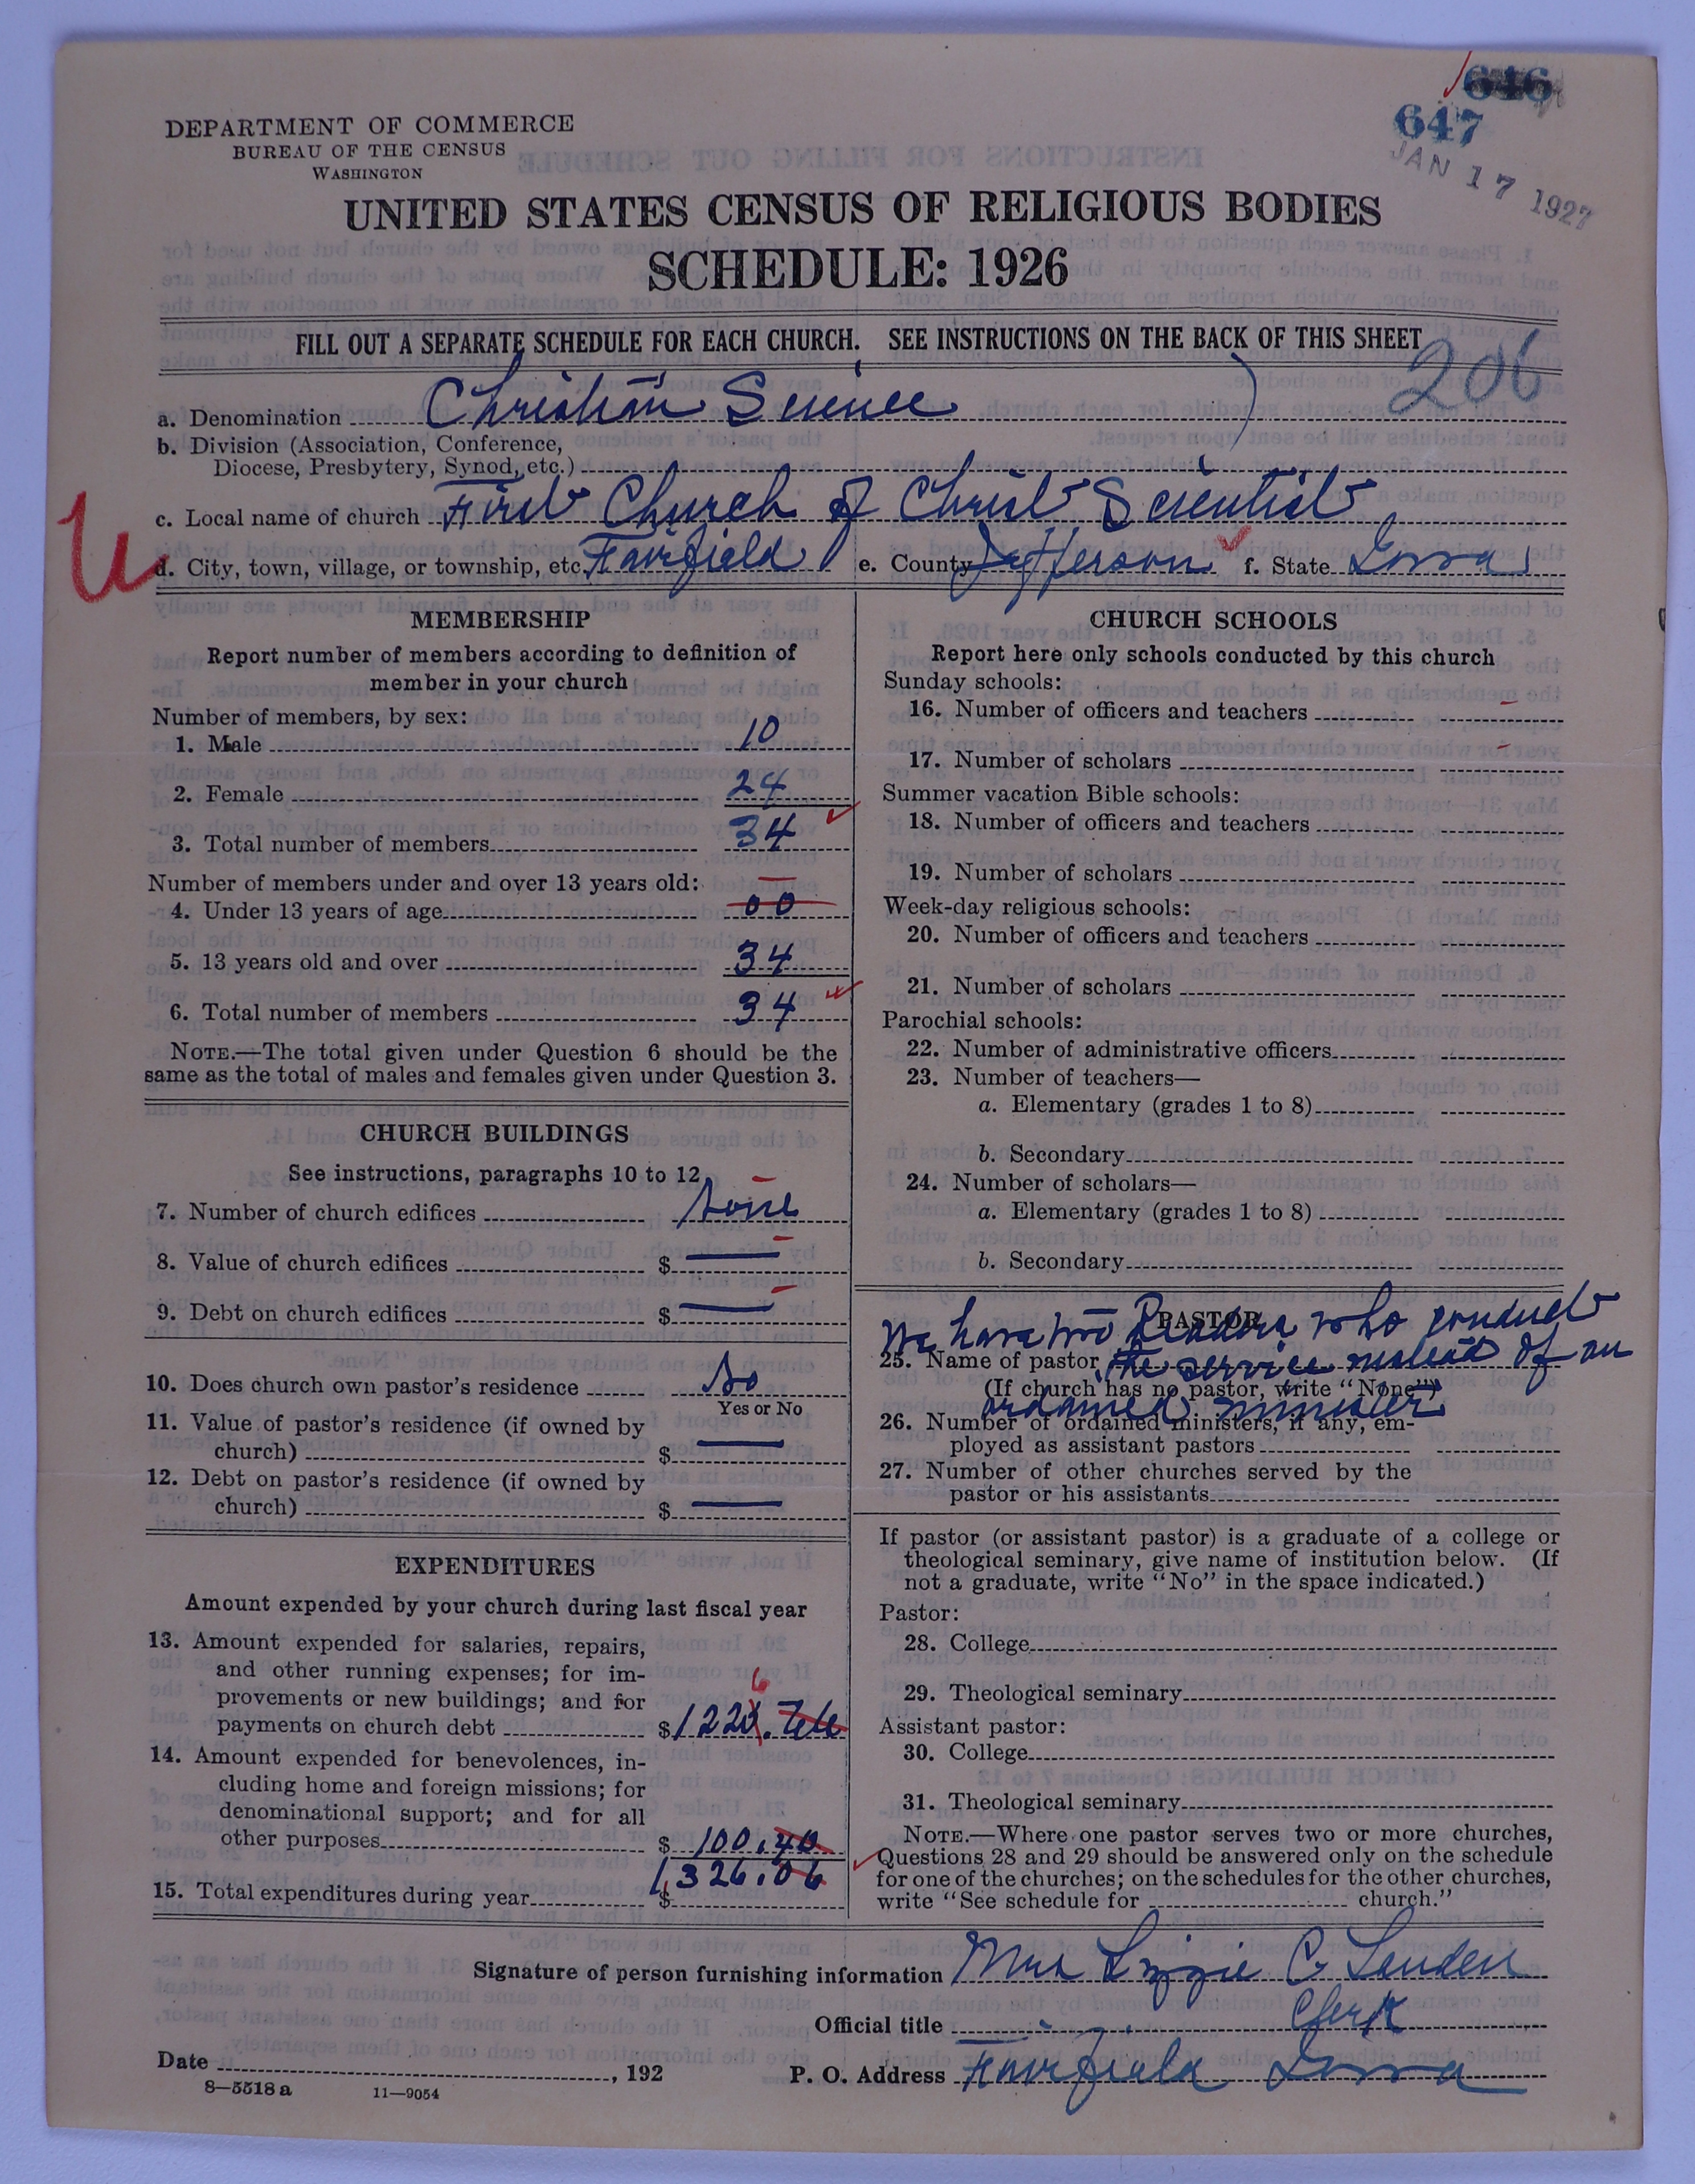 646
647
JAN 17 1927
DEPARTMENT OF COMMERCE
BUREAU OF THE CENSUS
WASHINGTON
UNITED STATES CENSUS OF RELIGIOUS BODIES
SCHEDULE: 1926
FILL OUT A SEPARATE SCHEDULE FOR EACH CHURCH. SEE INSTRUCTIONS ON THE BACK OF THIS SHEET
206
a. Denomination Christian Science
b. Division (Association, Conference,
Diocese, Presbytery, Synod, etc.)
c. Local name of church First Church of Christ Scientist
d. City, town, village, or township, etc. Fairfield e. County Jefferson f. State Iowa
MEMBERSHIP
Report number of members according to definition of
member in your church
Number of members, by sex:
1. Male 10
2. Female 24
3. Total number of members 34
Number of members under and over 13 years old:
4. Under 13 years of age 00
5. 13 years old and over 34
6. Total number of members 34
NOTE.—The total given under Question 6 should be the
same as the total of males and females given under Question 3.
CHURCH BUILDINGS
See instructions, paragraphs 10 to 12
7. Number of church edifices None
8. Value of church edifices $ —
9. Debt on church edifices $ —
10. Does church own pastor's residence No
Yes or No
11. Value of pastor's residence (if owned by
church) $ —
12. Debt on pastor's residence (if owned by
church) $ —
EXPENDITURES
Amount expended by your church during last fiscal year
13. Amount expended for salaries, repairs,
and other running expenses; for im-
provements or new buildings; and for
6
payments on church debt $ 1225.66
14. Amount expended for benevolences, in-
cluding home and foreign missions; for
denominational support; and for all
other purposes $ 100.40
15. Total expenditures during year $ 1,326.06
CHURCH SCHOOLS
Report here only schools conducted by this church
Sunday schools:
16. Number of officers and teachers
17. Number of scholars
Summer vacation Bible schools:
18. Number of officers and teachers
19. Number of scholars
Week-day religious schools:
20. Number of officers and teachers
21. Number of scholars
Parochial schools:
22. Number of administrative officers
23. Number of teachers—
a. Elementary (grades 1 to 8)
b. Secondary
24. Number of scholars—
a. Elementary (grades 1 to 8)
b. Secondary
PASTOR
We have two Readers who conduct
25. Name of pastor the service instead of an
(If church has no pastor, write "None")
ordained minister
26. Number of ordained ministers, if any, em-
ployed as assistant pastors
27. Number of other churches served by the
pastor or his assistants
If pastor (or assistant pastor) is a graduate of a college or
theological seminary, give name of institution below. (If
not a graduate, write "No" in the space indicated.)
Pastor:
28. College
29. Theological seminary
Assistant pastor:
30. College
31. Theological seminary
NOTE.—Where one pastor serves two or more churches,
Questions 28 and 29 should be answered only on the schedule
for one of the churches; on the schedules for the other churches,
write "See schedule for church."
Signature of person furnishing information Mrs Lizzie C
Official title Clerk
Date , 192 P. O. Address Fairfield Iowa
8—5518 a 11—9054